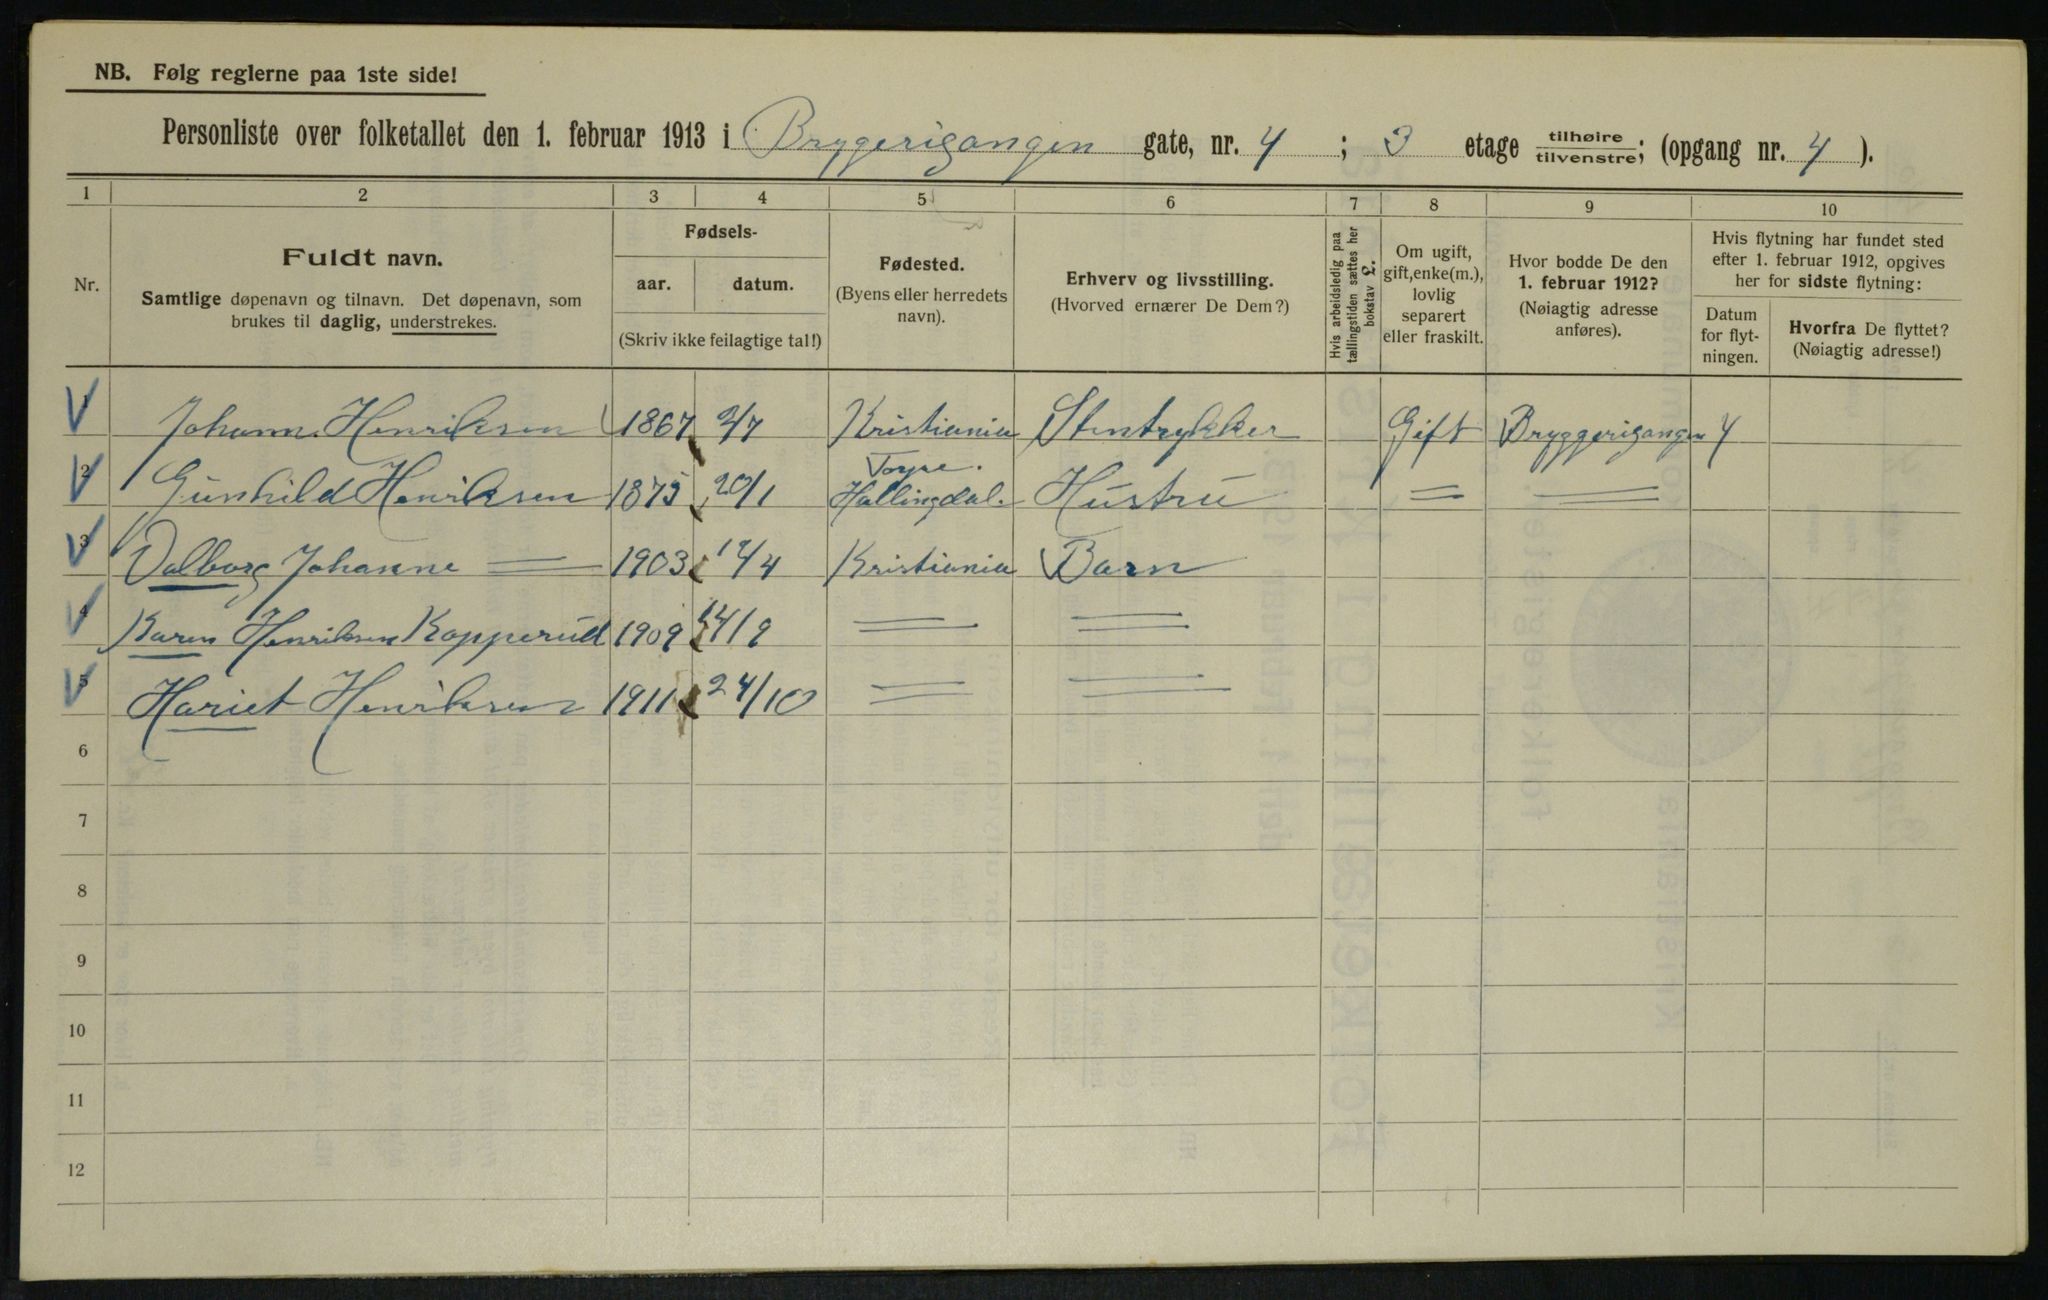 NB. Følg reglerne paa 1ste side!
Personliste over folketallet den 1. februar 1913 i Bryggerigangen gate, nr. 4 ; 3 etage tilhøire tilvenstre; (opgang nr. 4 ).
1 2 3 4 5 6 7 8 9 10
Nr.
Fuldt navn.
Samtlige døpenavn og tilnavn. Det døpenavn, som
brukes til daglig, understrekes.
Fødsels-
aar. datum.
(Skriv ikke feilagtige tal!)
Fødested.
(Byens eller herredets
navn).
Erhverv og livsstilling.
(Hvorved ernærer De Dem?)
Hvis arbeidsledig paa
tællingstiden sættes her
bokstav L.
Om ugift,
gift, enke(m.),
lovlig
separert
eller fraskilt.
Hvor bodde De den
1. februar 1912?
(Nøiagtig adresse
anføres).
Hvis flytning har fundet sted
efter 1. februar 1912, opgives
her for sidste flytning:
Datum
for flyt-
ningen.
Hvorfra De flyttet?
(Nøiagtig adresse!)
1 Johann. Henriksen 1867 2/7 Kristiania Stentrykker Gift Bryggerigangen 4
2 Gunhild Henriksen 1875 20/1 Hallingdal. Hustru = =
3 Valborg Johanne = 1903 /4 Kristiania Barn
4 Karen Henriksen Kopperud 1909 14/9 = =
5 Hariet Henriksen 1911 24/10 = =
6
7
8
9
10
11
12